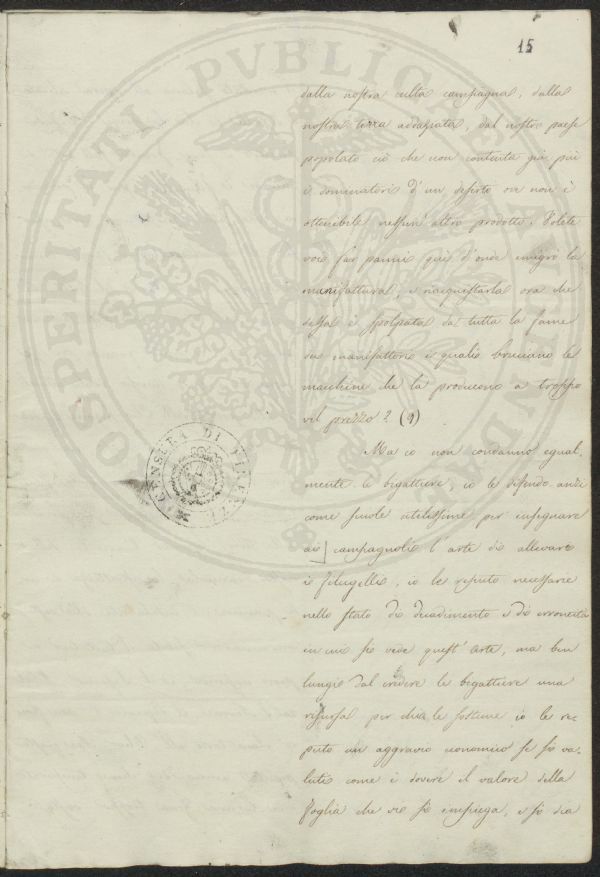 15
dalla nostra culta campagna, dalla
nostra terra adacquata, dal nostro paese
popolato ciò che non contenta già più
i dominatori d'un deserto ove non è
ottenibile nessun altro prodotto. Volete
voi far panni qui d'onde emigrò la
manifattura, e riacquistarla ora che
dessa è spolpata da tutta la fame
dei manifattori i quali bruciano le
macchine che la producono a troppo
vil prezzo? (9)
Ma io non condanno egual-
mente le bigattiere, io le difendo anzi
come scuole utilissime per insegnare
ai campagnoli l'arte di allevare
i filugelli, io le reputo necessarie
nello stato di decadimento e di erroneità
in cui si vede quest'arte, ma ben
lungi dal credere le bigattiere una
risorsa per chi le sostiene io le re-
puto un aggravio economico se si va-
luti come è dovere il valore della
foglia che vi si impiega, e si dia
PROSPERITATI PVBLICAE AVGENDAE